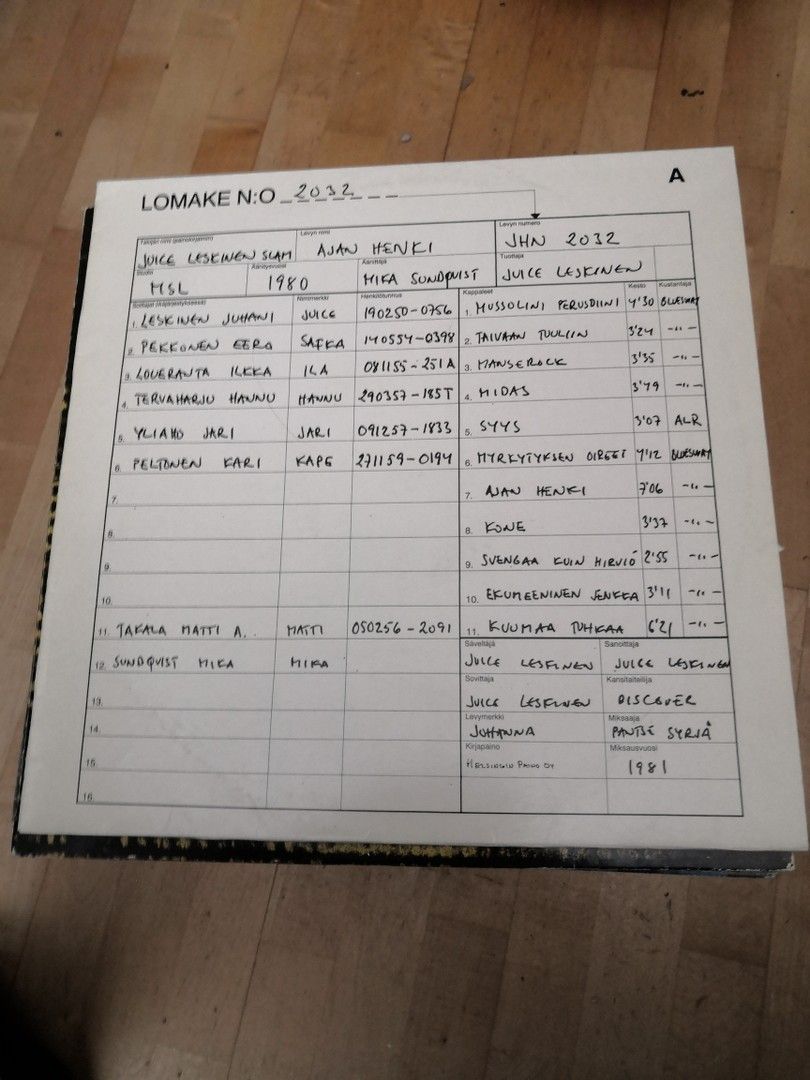 A
LOMAKE N:O 2032
Tekijän nimi (esiintyjänimi) Levyn nimi Levyn numero
JUICE LESKINEN SLAM AJAN HENKI JHN 2032
Studio Äänitysvuosi Äänittäjä Tuottaja
MSL 1980 MIKA SUNDQVIST JUICE LESKINEN
Soittajat (aakkosjärjestyksessä) Nimimerkki Henkilötunnus Kappaleet Kesto Kustantaja
1. LESKINEN JUHANI JUICE 190250-0756 1. MUSSOLINI PERUSDIINI 4'30 BLUESWAY
2. PEKKONEN EERO SAFKA 140554-0398 2. TAIVAAN TUULIIN 3'24 -"-
3. LOUERANTA ILKKA ILA 081155-251A 3. MANSEROCK 3'35 -"-
4. TERVAHARJU HANNU HANNU 290357-185T 4. MIDAS 3'49 -"-
5. YLIAHO JARI JARI 091257-1833 5. SYYS 3'07 ALR
6. PELTONEN KARI KAPE 271159-0194 6. MYRKYTYKSEN OIREET 4'12 BLUESWAY
7. 7. AJAN HENKI 7'06 -"-
8. 8. KONE 3'37 -"-
9. 9. SVENGAA KUIN HIRVIÖ 2'55 -"-
10. 10. EKUMEENINEN JENKKA 3'11 -"-
11. TAKALA MATTI A. MATTI 050256-2091 11. KUUMAA TUHKAA 6'21 -"-
12. SUNDQVIST MIKA MIKA
Säveltäjä Sanoittaja
JUICE LESKINEN JUICE LESKINEN
13.
Sovittaja Kansitaiteilija
JUICE LESKINEN DISCOVER
14.
Levymerkki Miksaaja
JOHANNA PANTSE SYRJÄ
15.
Kirjapaino Miksausvuosi
HELSINGIN PAINO OY 1981
16.